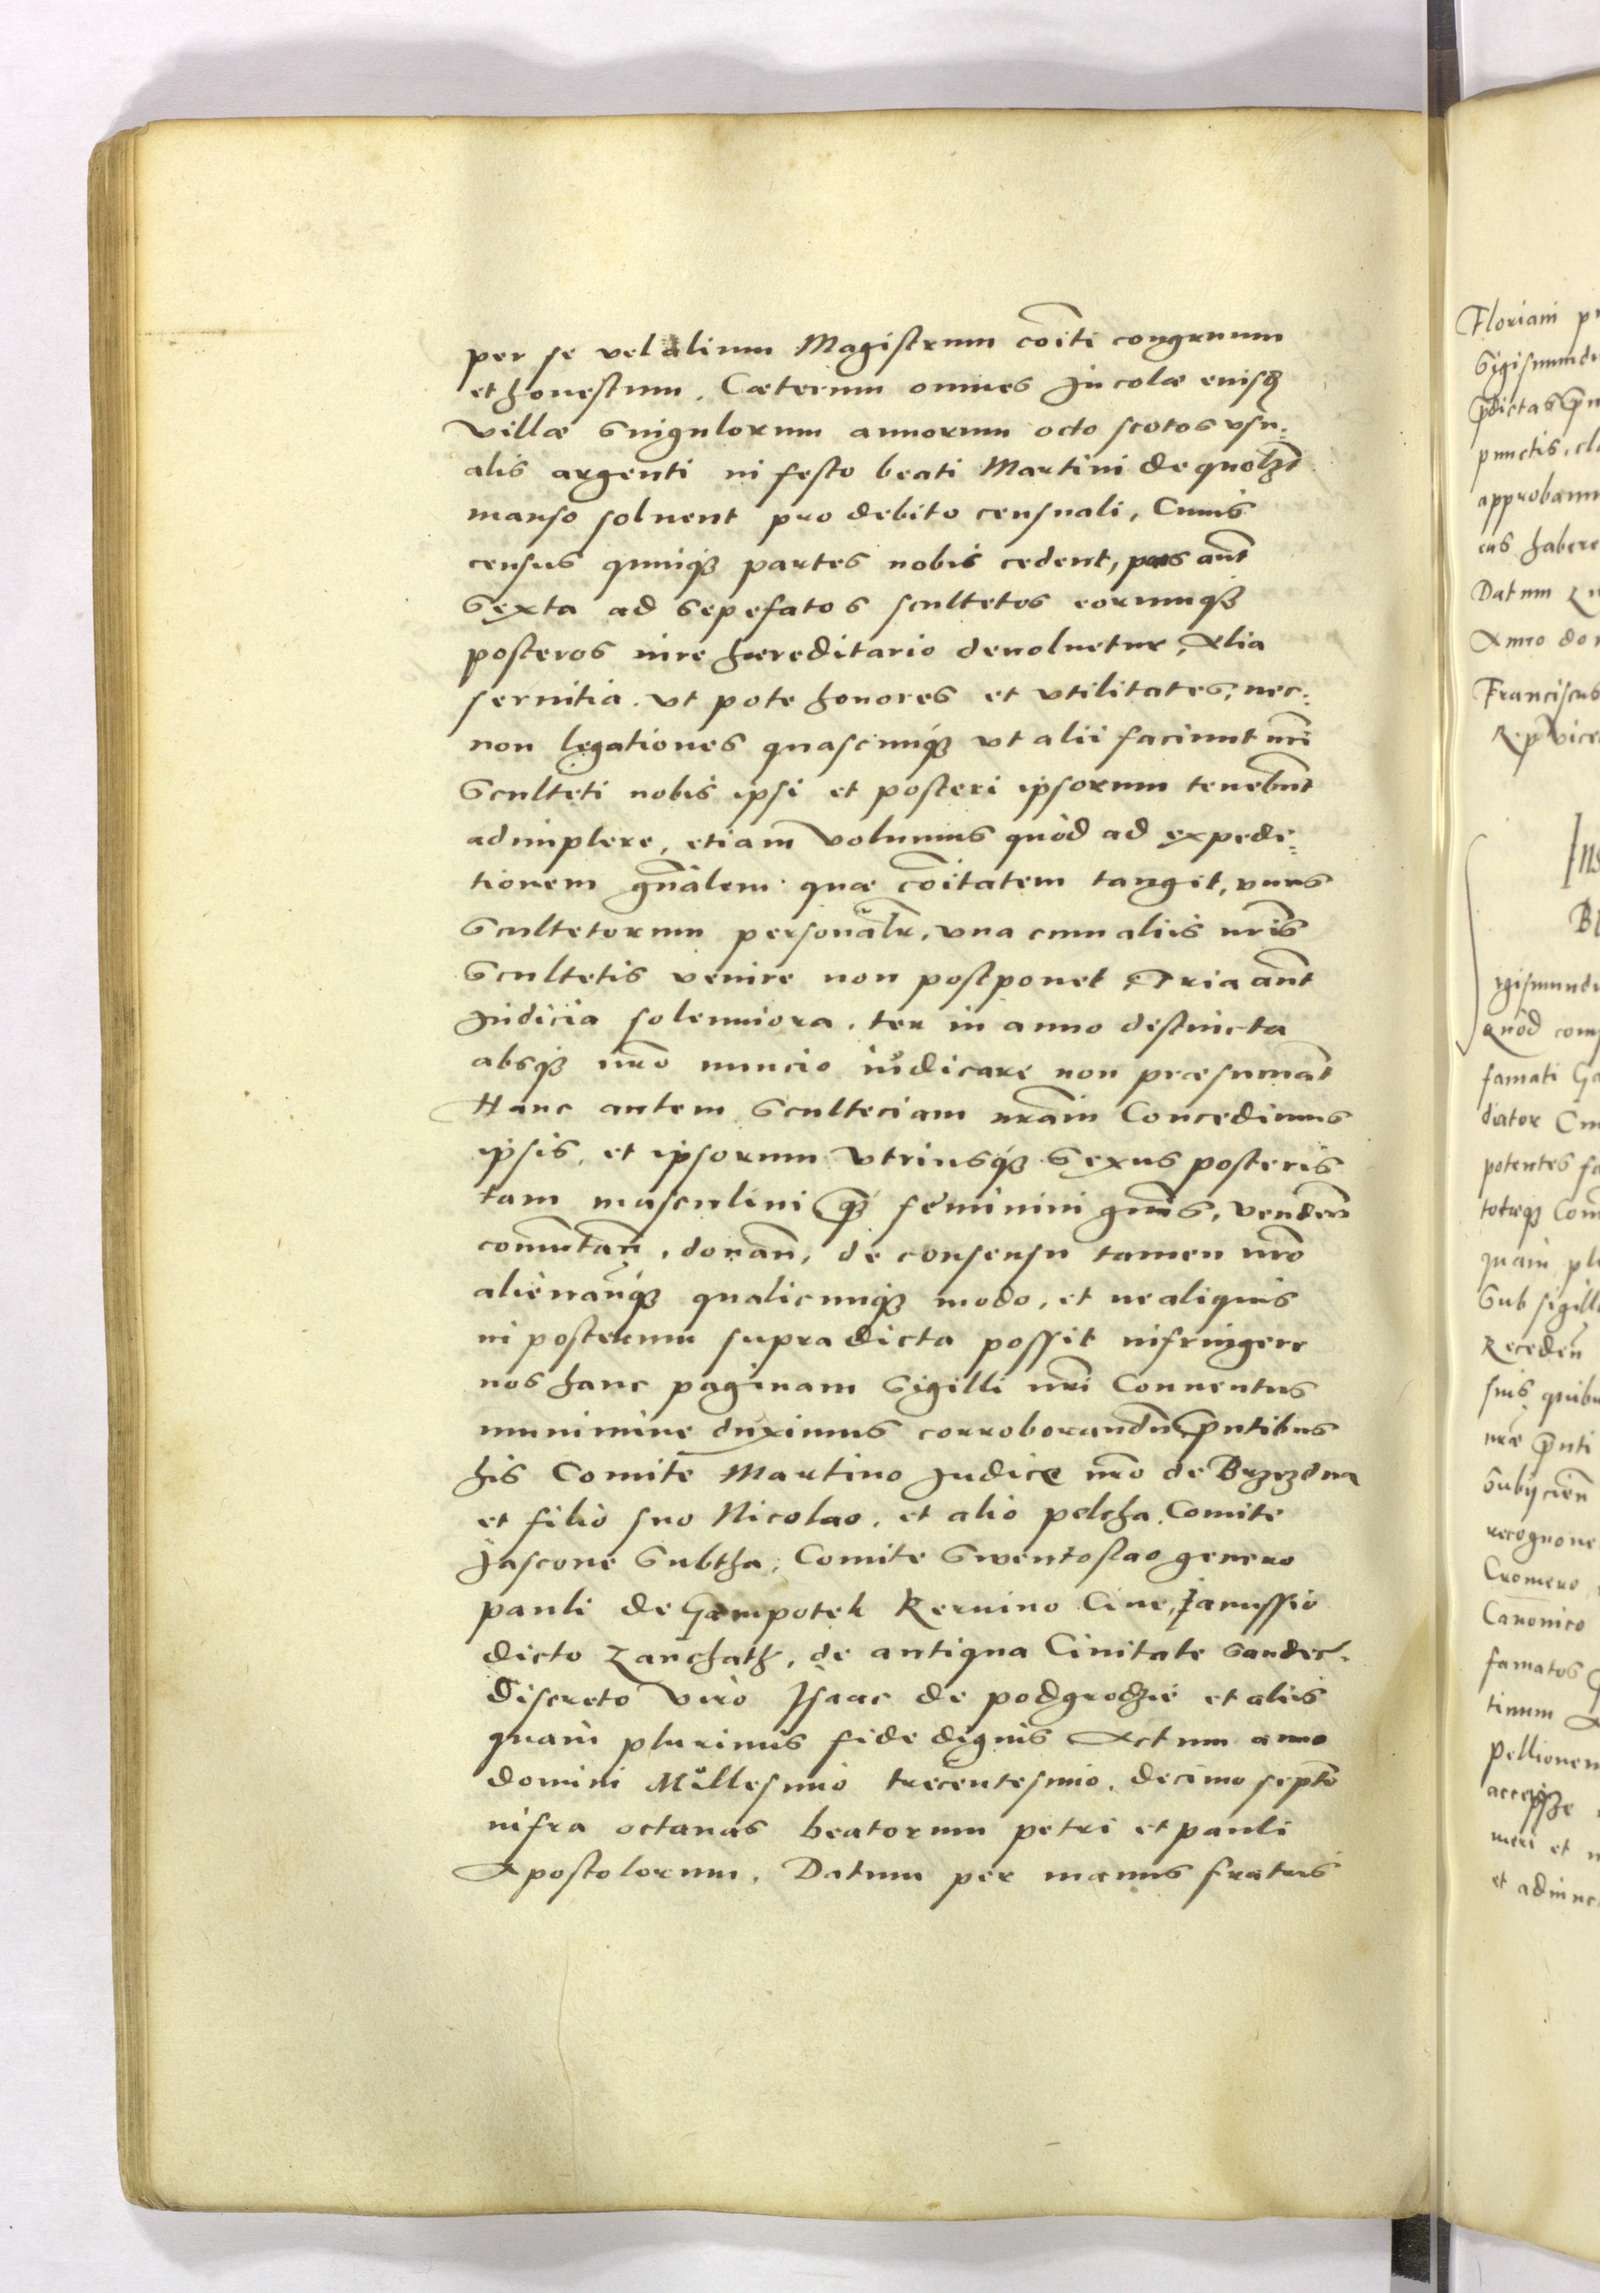 per se vel alium Magistrum coīti congruum
et honestum. Cæterum omnes Incolæ eiusq̃
Villæ Singulorum annorum octo scotos vsu:
alis argenti in festo beati Martini de quolꝫt
manso soluent pro debito censuali, Cuius
census quinq́ꝫ partes nobis cedent, pars aūt
Sexta ad Sepefatos scultetos eorumq́ꝫ
posteros iure hæreditario deuoluetur, Alia
seruitia. vt pote honores et vtilitates, nec:
non legationes quascunq́ꝫ vt alii faciunt nr̄i
Sculteti nobis ipsi et posteri ipsorum tenebūt
adimplere, etiam Volumus quòd ad expedi:
tionem gn̄alem quæ cōitatem tangit, vnus
Scultetorum personalr̄, vna cum aliis nr̄is
Scultetis venire non postponet Tria aūt
Iudicia solemniora, ter in anno distincta
absq́ꝫ nr̄o nuncio iudicare non præsumāt
Hanc autem Sculteciam nr̄am Concedimus
ipsis, et ipsorum vtriusq́ꝫ Sexus posteris
tam masculini q̃ꝫ feminini gn̄is, vendeñ
commutañ, donañ, de consensu tamen nr̄o
alienañq́ꝫ qualicunq́ꝫ modo, et ne aliquis
in posterum supradicta possit infringere
nos hanc paginam Sigilli nr̄i Conuentus
munimine duximus corroborandū p̄ntibus
his Comite Martino Iudice nr̄o de Brzezdna
et filio suo Nicolao, et alio pelcha, Comite
Jascone Subtha, Comite Swentoslao genero
pauli de Gæmpotek Keruino Ciue, Janussio
dicto Zanchath, de antiqua Ciuitate Sandec̄.
Discreto viro Isaac de podgrodzie et aliis
quam plurimis fide dignis Actum anno
domini Millesimo trecentesimo, decimo septō
infra octauas beatorum petri et pauli
Apostolorum, Datum per manus fratris
Floriani
Sigismundu
p̄dictas
punctis,
approbam
eas habere
Datum
Anno
Franciscus
Ins
gismundu
Quòd com
famati
diator
potentes
totiusq́ꝫ
quam
Sub sigill
Receden̄
suis quibu
p̄nti
Subijcien̄
recogno
Cromero
Canonico
famatos
tinum
Pellionem
et
et adiunc